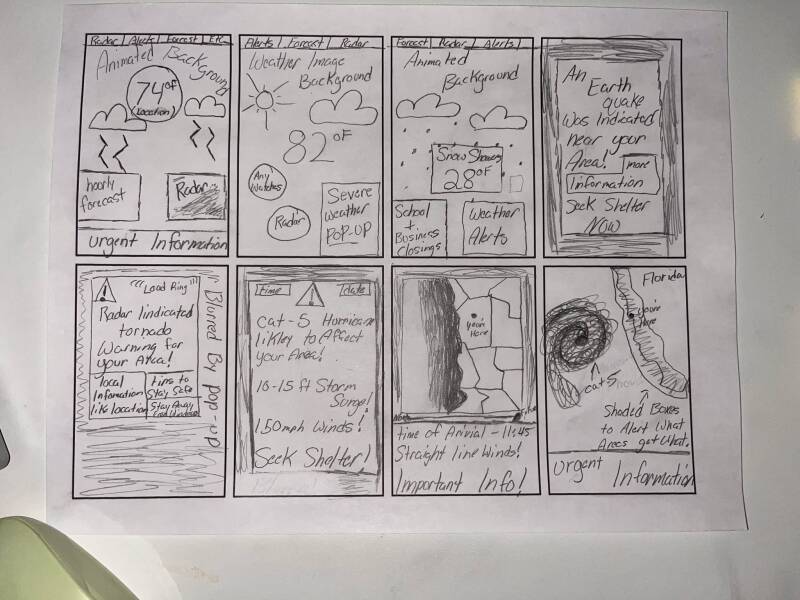 Radar Alerts Forcast Etc.
Animated Background
74°F
(Location)
hourly
forecast
Radar
Urgent Information
Alerts Forcast Radar
Weather Image
Background
82°F
Any
Watches
Radar
Severe
Weather
POP-UP
Forcast Radar Alerts
Animated
Background
Snow Showers
28°F
School
+
Business
Closings
Weather
Alerts
An
Earth
quake
Was Indicated
near your
Area!
more
Information
Seek Shelter
Now
"Loud Ring"
Radar Iindicated
tornado
Warning for
your Area!
local
Information
like location
tips to
Stay Safe
Stay Away
From Windows
"Blurred By pop-up"
time
date
Cat-5 Hurricane
likley to Affect
your Area!
10-15 ft Storm
Surge!
150mph Winds!
Seek Shelter!
you're
Here
time of Arivial - 11:45
Straight line Winds!
Important Info!
Florida
you're
Here
cat 5
Shaded Boxes
to Alert What
Areas get What.
Urgent Information